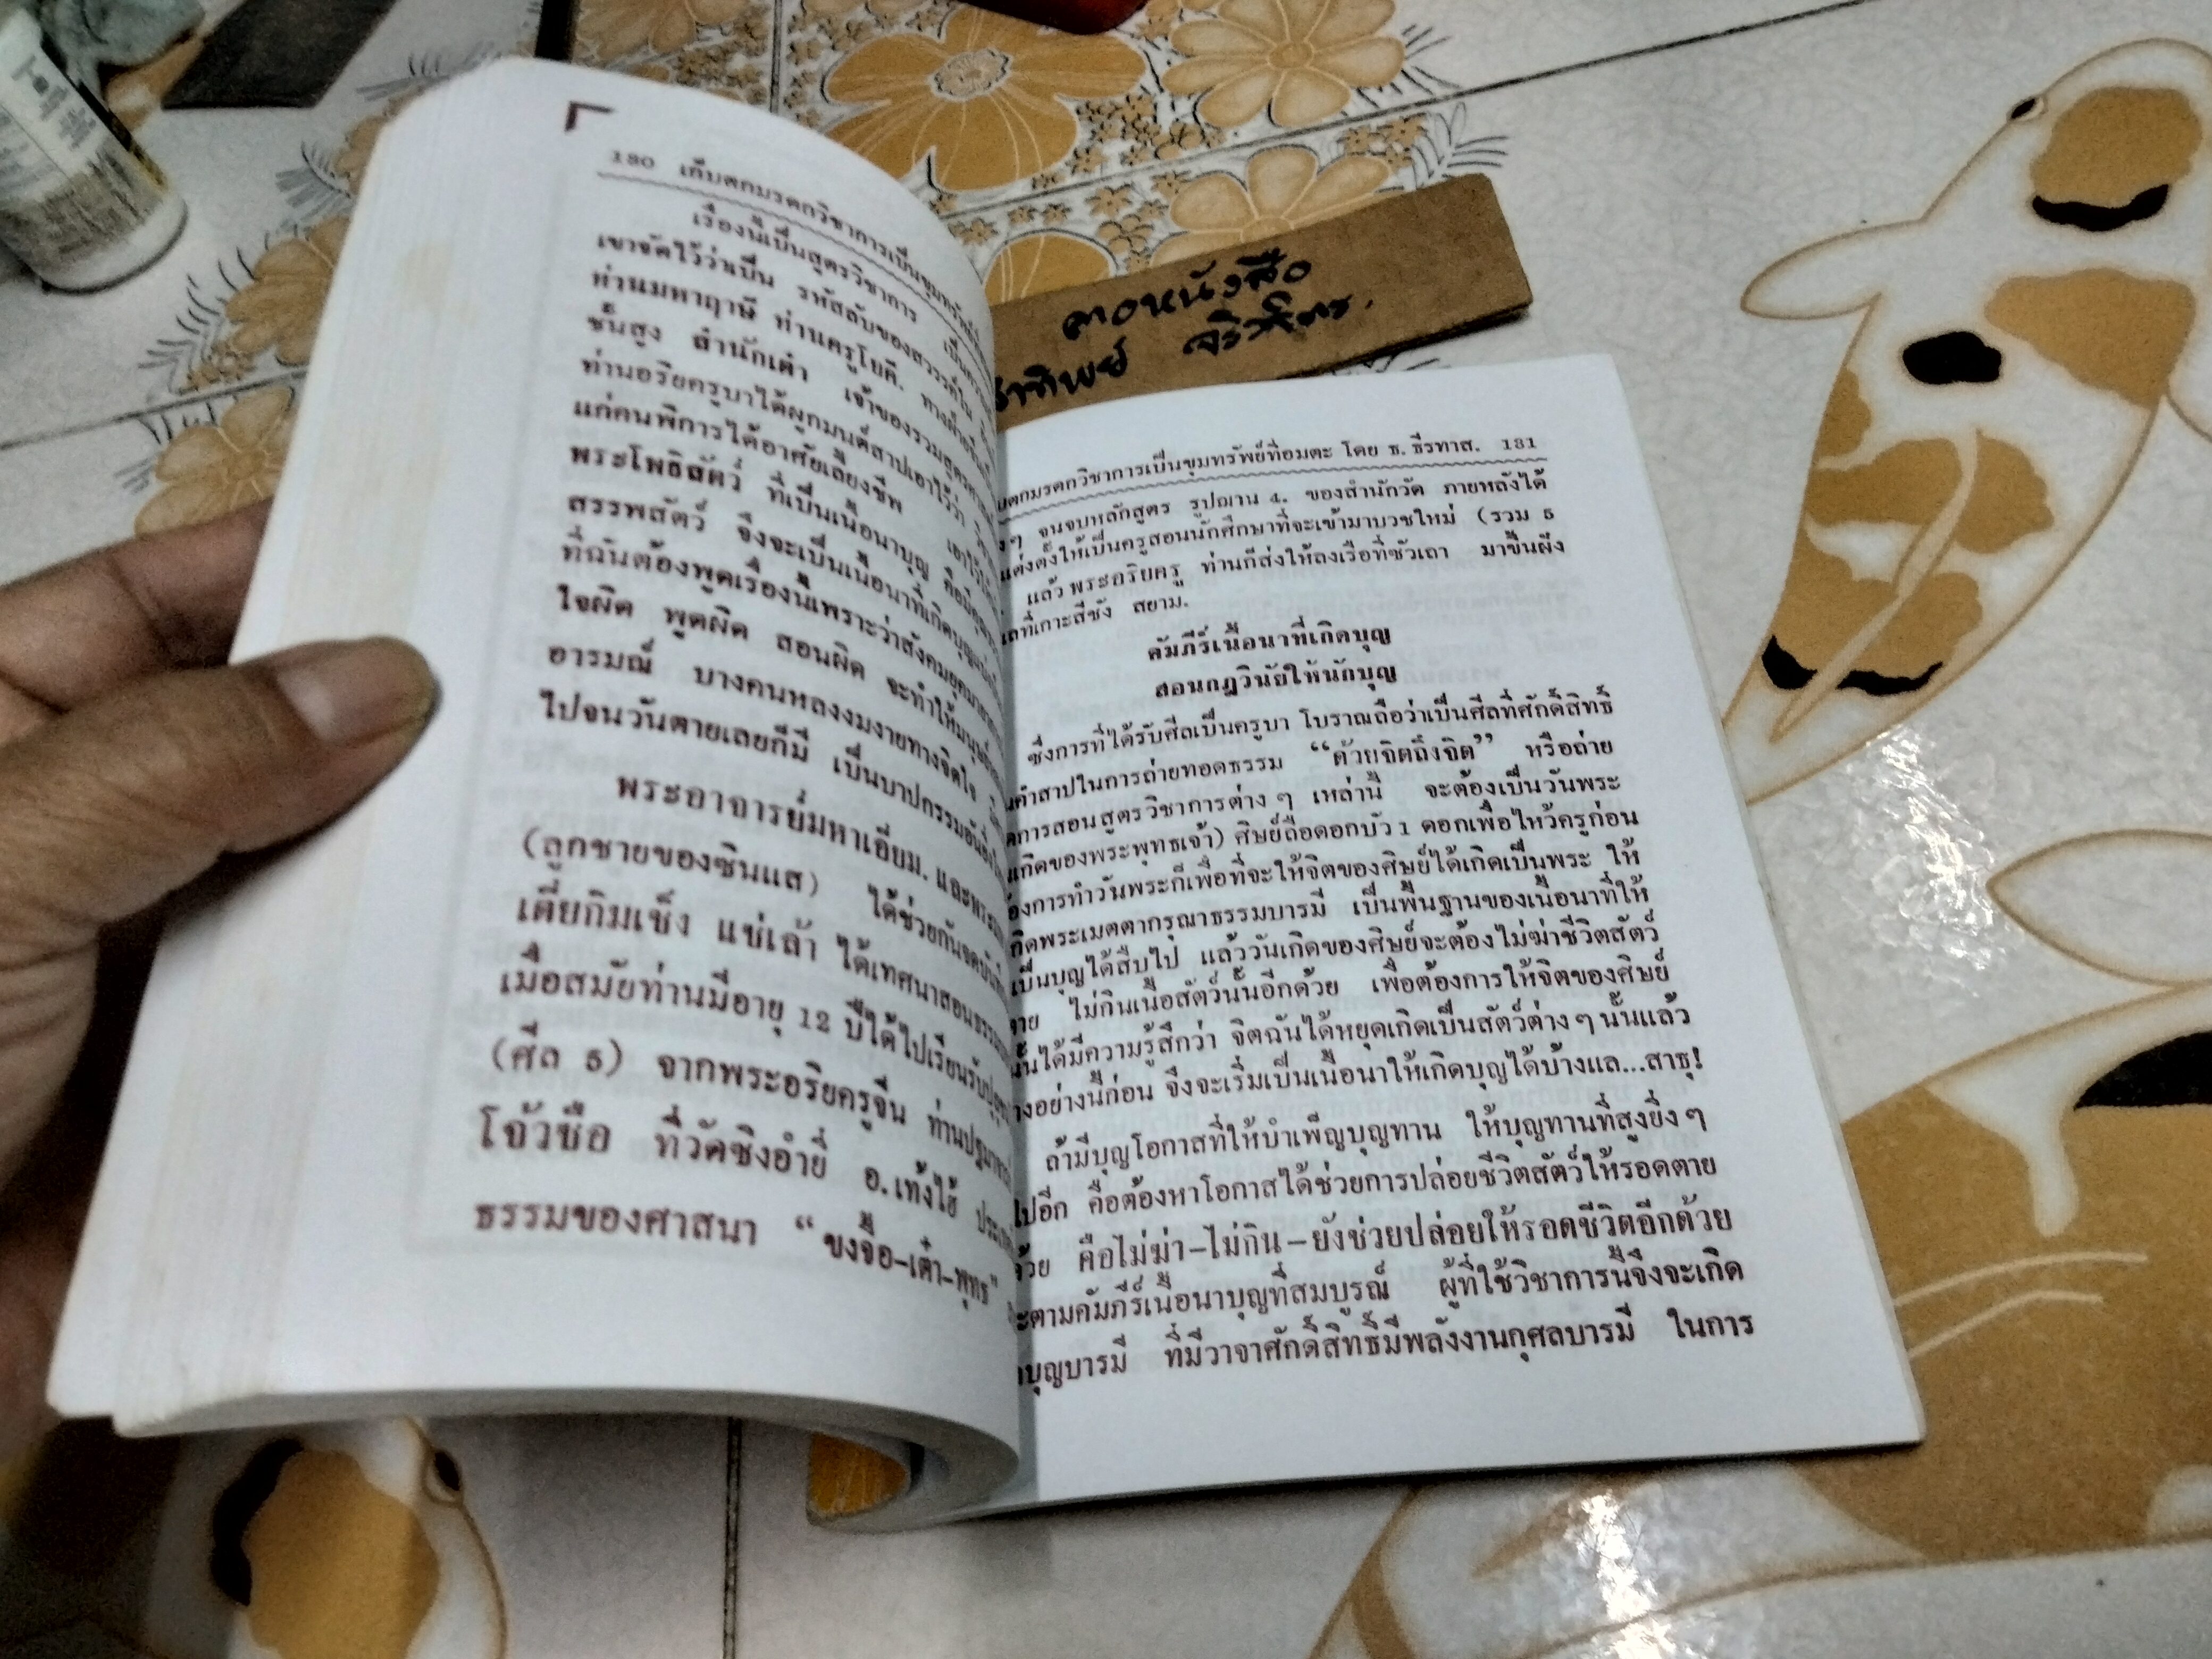 180 เก็บตกมรดกวิชาการเป็นขุมทรัพย์
เรื่องนี้เป็นสูตรวิชาการ
เขาจัดไว้ว่าเป็น รหัสลับของสวรรค์ใน
ท่านมหาฤาษี ท่านครูโยคี. ทางฝ่าย
ชั้นสูง สำนักเต๋า เจ้าของรวมสูตร
ท่านอริยครูบาได้ผูกมนต์สาปเอาไว้ว่า
แก่คนพิการได้อาศัยเลี้ยงชีพ เอาไว้
พระโพธิสัตว์ ที่เป็นเนื้อนาบุญ คือ
สรรพสัตว์ จึงจะเป็นเนื้อนาที่เกิดบุญ
ที่ฉันต้องพูดเรื่องนี้เพราะว่าสังคมยุค
ใจผิด พูดผิด สอนผิด จะทำให้มนุษย์
อารมณ์ บางคนหลงงมงายทางจิตใจ
ไปจนวันตายเลยก็มี เป็นบาปกรรมอัน
พระอาจารย์มหาเอี่ยม. และพระ
(ลูกชายของซินแส) ได้ช่วยกันจดบันทึก
เตี่ยกิมเช็ง แซ่เล้า ได้เทศนาสอนธรรม
เมื่อสมัยท่านมีอายุ 12 ปีได้ไปเรียนรับ
(ศีล 5) จากพระอริยครูจีน ท่านปฐม
โจ้วซือ ที่วัดชิงอำยี่ อ.เท้งไฮ้
ธรรมของศาสนา “ขงจื๊อ-เต๋า-พุทธ”
ลาอหนังสือ
จริงจิตร.
ราทิพย์
มรดกวิชาการเป็นขุมทรัพย์ที่อมตะ โดย ธ. ธีรทาส. 181
ๆ จนจบหลักสูตร รูปฌาน 4. ของสำนักวัด ภายหลังได้
แต่งตั้งให้เป็นครูสอนนักศึกษาที่จะเข้ามาบวชใหม่ (รวม 5
แล้วพระอริยครู ท่านก็ส่งให้ลงเรือที่ซัวเถา มาขึ้นฝั่ง
ที่เกาะสีชัง สยาม.
คัมภีร์เนื้อนาที่เกิดบุญ
สอนกฎวินัยให้นักบุญ
ซึ่งการที่ได้รับศีลเป็นครูบา โบราณถือว่าเป็นศีลที่ศักดิ์สิทธิ์
คำสาปในการถ่ายทอดธรรม “ด้วยจิตถึงจิต” หรือถ่าย
การสอนสูตรวิชาการต่าง ๆ เหล่านี้ จะต้องเป็นวันพระ
เกิดของพระพุทธเจ้า) ศิษย์ถือดอกบัว 1 ดอกเพื่อไหว้ครูก่อน
การทำวันพระก็เพื่อที่จะให้จิตของศิษย์ได้เกิดเป็นพระ ให้
เกิดพระเมตตากรุณาธรรมบารมี เป็นพื้นฐานของเนื้อนาที่ให้
เป็นบุญได้สืบไป แล้ววันเกิดของศิษย์จะต้องไม่ฆ่าชีวิตสัตว์
ไม่กินเนื้อสัตว์นั้นอีกด้วย เพื่อต้องการให้จิตของศิษย์
นั้นได้มีความรู้สึกว่า จิตฉันได้หยุดเกิดเป็นสัตว์ต่าง ๆ นั้นแล้ว
อย่างนี้ก่อน จึงจะเริ่มเป็นเนื้อนาให้เกิดบุญได้บ้างแล...สาธุ!
ถ้ามีบุญโอกาสที่ให้บำเพ็ญบุญทาน ให้บุญทานที่สูงยิ่ง ๆ
ไปอีก คือต้องหาโอกาสได้ช่วยการปล่อยชีวิตสัตว์ให้รอดตาย
ด้วย คือไม่ฆ่า-ไม่กิน-ยังช่วยปล่อยให้รอดชีวิตอีกด้วย
ตามคัมภีร์เนื้อนาบุญที่สมบูรณ์ ผู้ที่ใช้วิชาการนี้จึงจะเกิด
บุญบารมี ที่มีวาจาศักดิ์สิทธิ์มีพลังงานกุศลบารมี ในการ